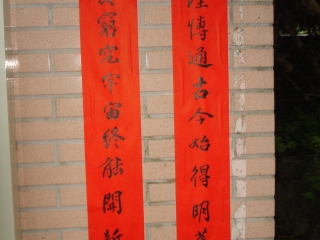 博通古今始得明
窮究宇宙終能開新